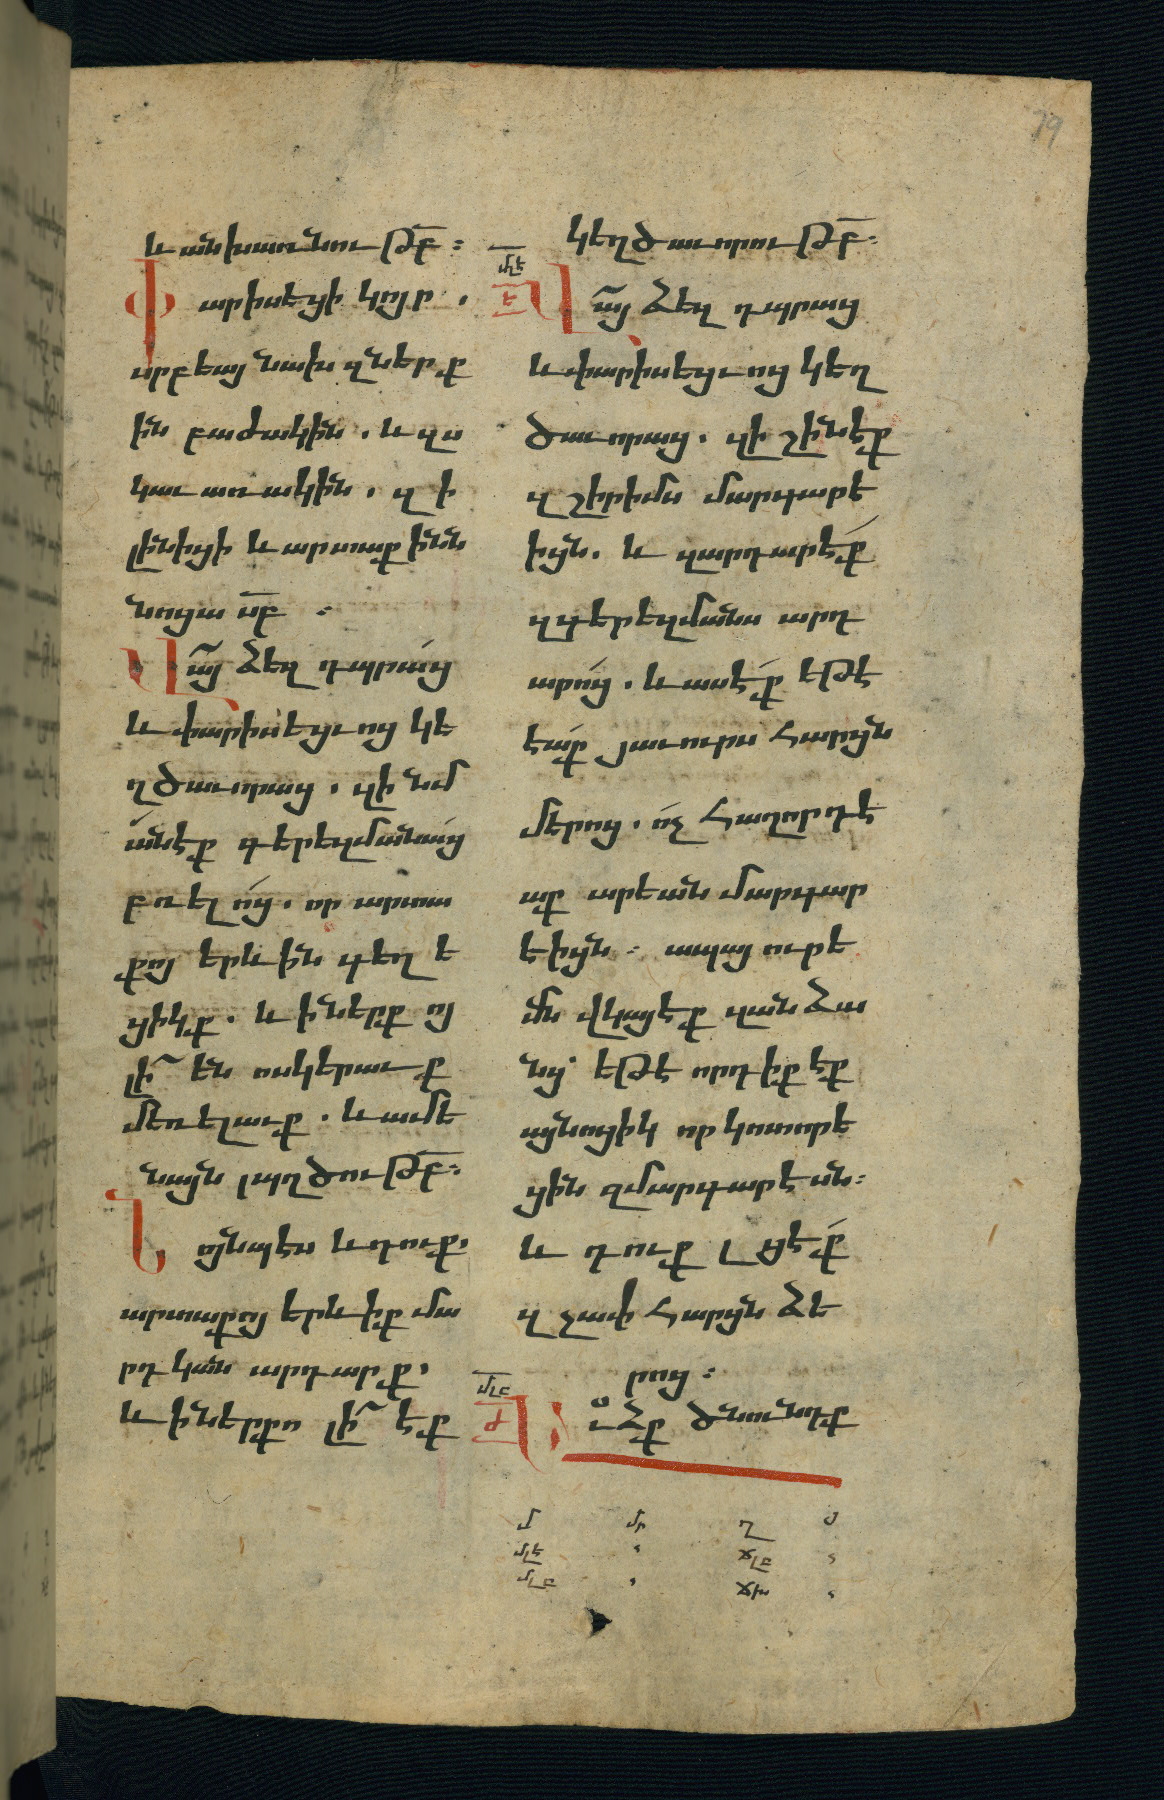 և անխառնութբ :
Փարիսեցի կոյր .
սրբեայ նախ զներք
ին բաժակին . և զս
կաւառակին . զի
լինիցի և արտաքինն
նոցա սբ :
Վայ ձեզ դպրաց
և փարիսեցւոց կե
ղծաւորաց . զի նմ
անէք գերեզմանաց
բռելոց . որ արտա
քոյ երևին գեղե
ցիկք . և ի ներքոյ
լի են ոսկերաւք
մեռելաւք . և ամե
նայն պղծութբ :
Նոյնպէս և դուք .
արտաքոյ երևիք մա
րդկան արդարք .
և ի ներքո լի էք
կեղծաւորութբ :
մլե
Վայ ձեզ դպրաց
և փարիսեցւոց կեղ
ծաւորաց . զի շինէք
զշիրիմս մարգարէ
իցն . և զարդարէք
զգերեզմանս արդ
արոց . և ասէք եթէ
էաք յաւուրս հարցն
մերոց . ոչ հաղորդէ
աք արեան մարգար
էիցն : ապայ ուրե
մն վկայէք զանձա
նց եթէ որդիք էք
այնոցիկ որ կոտորե
ցին զմարգարէսն :
և դուք լցէք
զչափ հարցն ձե
րոց :
Օձք ծնունդք
79